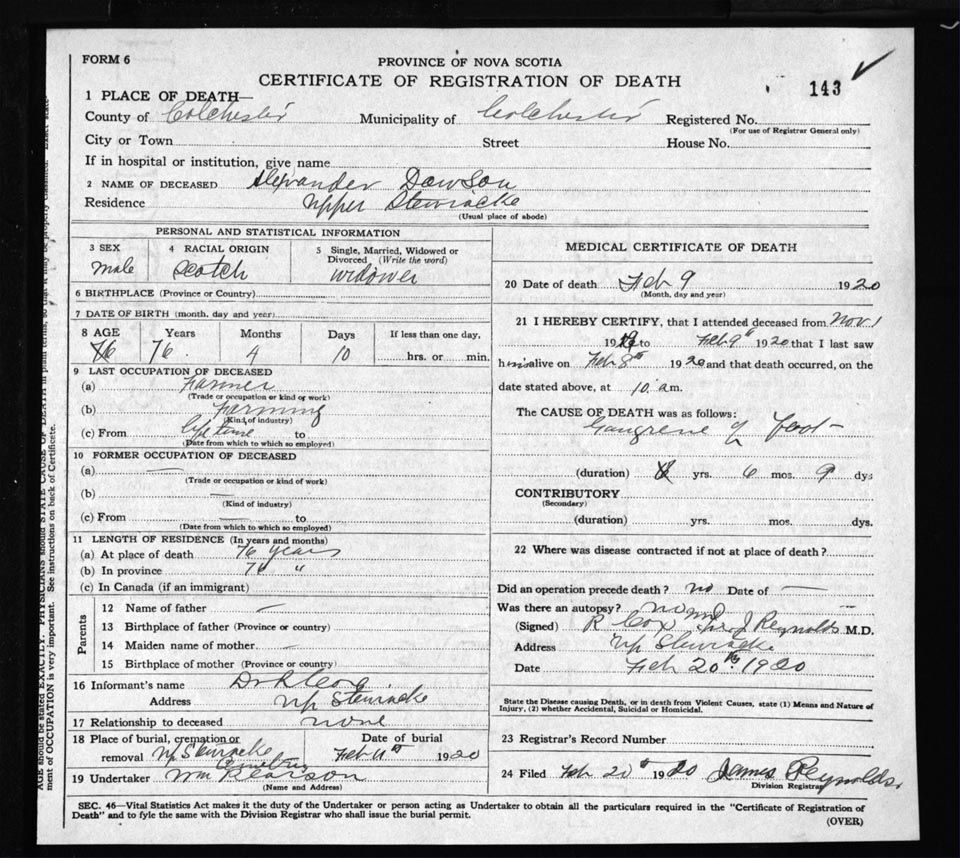 FORM 6
PROVINCE OF NOVA SCOTIA
CERTIFICATE OF REGISTRATION OF DEATH
143
1 PLACE OF DEATH—
County of Colchester Municipality of Colchester Registered No.
(For use of Registrar General only)
City or Town Street House No.
If in hospital or institution, give name
2 NAME OF DECEASED Alexander Dawson
Residence Upper Stewiacke
(Usual place of abode)
PERSONAL AND STATISTICAL INFORMATION
3 SEX 4 RACIAL ORIGIN 5 Single, Married, Widowed or Divorced (Write the word)
male Scotch widower
6 BIRTHPLACE (Province or Country)
7 DATE OF BIRTH (month, day and year)
8 AGE Years Months Days If less than one day,
76 76 4 10 hrs. or min.
9 LAST OCCUPATION OF DECEASED
(a) Farmer
(Trade or occupation or kind of work)
(b) Farming
(Kind of industry)
(c) From life time to
(Date from which to which so employed)
10 FORMER OCCUPATION OF DECEASED
(a) —
(Trade or occupation or kind of work)
(b) —
(Kind of industry)
(c) From — to
(Date from which to which so employed)
11 LENGTH OF RESIDENCE (In years and months)
(a) At place of death 76 years
(b) In province 76 "
(c) In Canada (if an immigrant)
Parents
12 Name of father —
13 Birthplace of father (Province or country)
14 Maiden name of mother —
15 Birthplace of mother (Province or country)
16 Informant's name Dr R
Address Up Stewiacke
17 Relationship to deceased none
18 Place of burial, cremation or removal Up Stewiacke Cemetery
Date of burial Feb 11th 1920
19 Undertaker Wm Pearson
(Name and Address)
MEDICAL CERTIFICATE OF DEATH
20 Date of death Feb 9 1920
(Month, day and year)
21 I HEREBY CERTIFY, that I attended deceased from Nov 1
1919 to Feb 9th 1920 that I last saw
him alive on Feb 8th 1920 and that death occurred, on the
date stated above, at 10 am.
The CAUSE OF DEATH was as follows:
Gangrene of foot
(duration) yrs. 6 mos. 9 dys
CONTRIBUTORY
(Secondary)
(duration) yrs. mos. dys.
22 Where was disease contracted if not at place of death?
Did an operation precede death? no Date of —
Was there an autopsy? no
(Signed) R Cox md J Reynolds M.D.
Address Up Stewiacke
Date Feb 20th 1920
State the Disease causing Death, or in death from Violent Causes, state (1) Means and Nature of
Injury, (2) whether Accidental, Suicidal or Homicidal.
23 Registrar's Record Number
24 Filed Feb 20th 1920 James Reynolds
Division Registrar
SEC. 46—Vital Statistics Act makes it the duty of the Undertaker or person acting as Undertaker to obtain all the particulars required in the "Certificate of Registration of
Death" and to fyle the same with the Division Registrar who shall issue the burial permit.
(OVER)